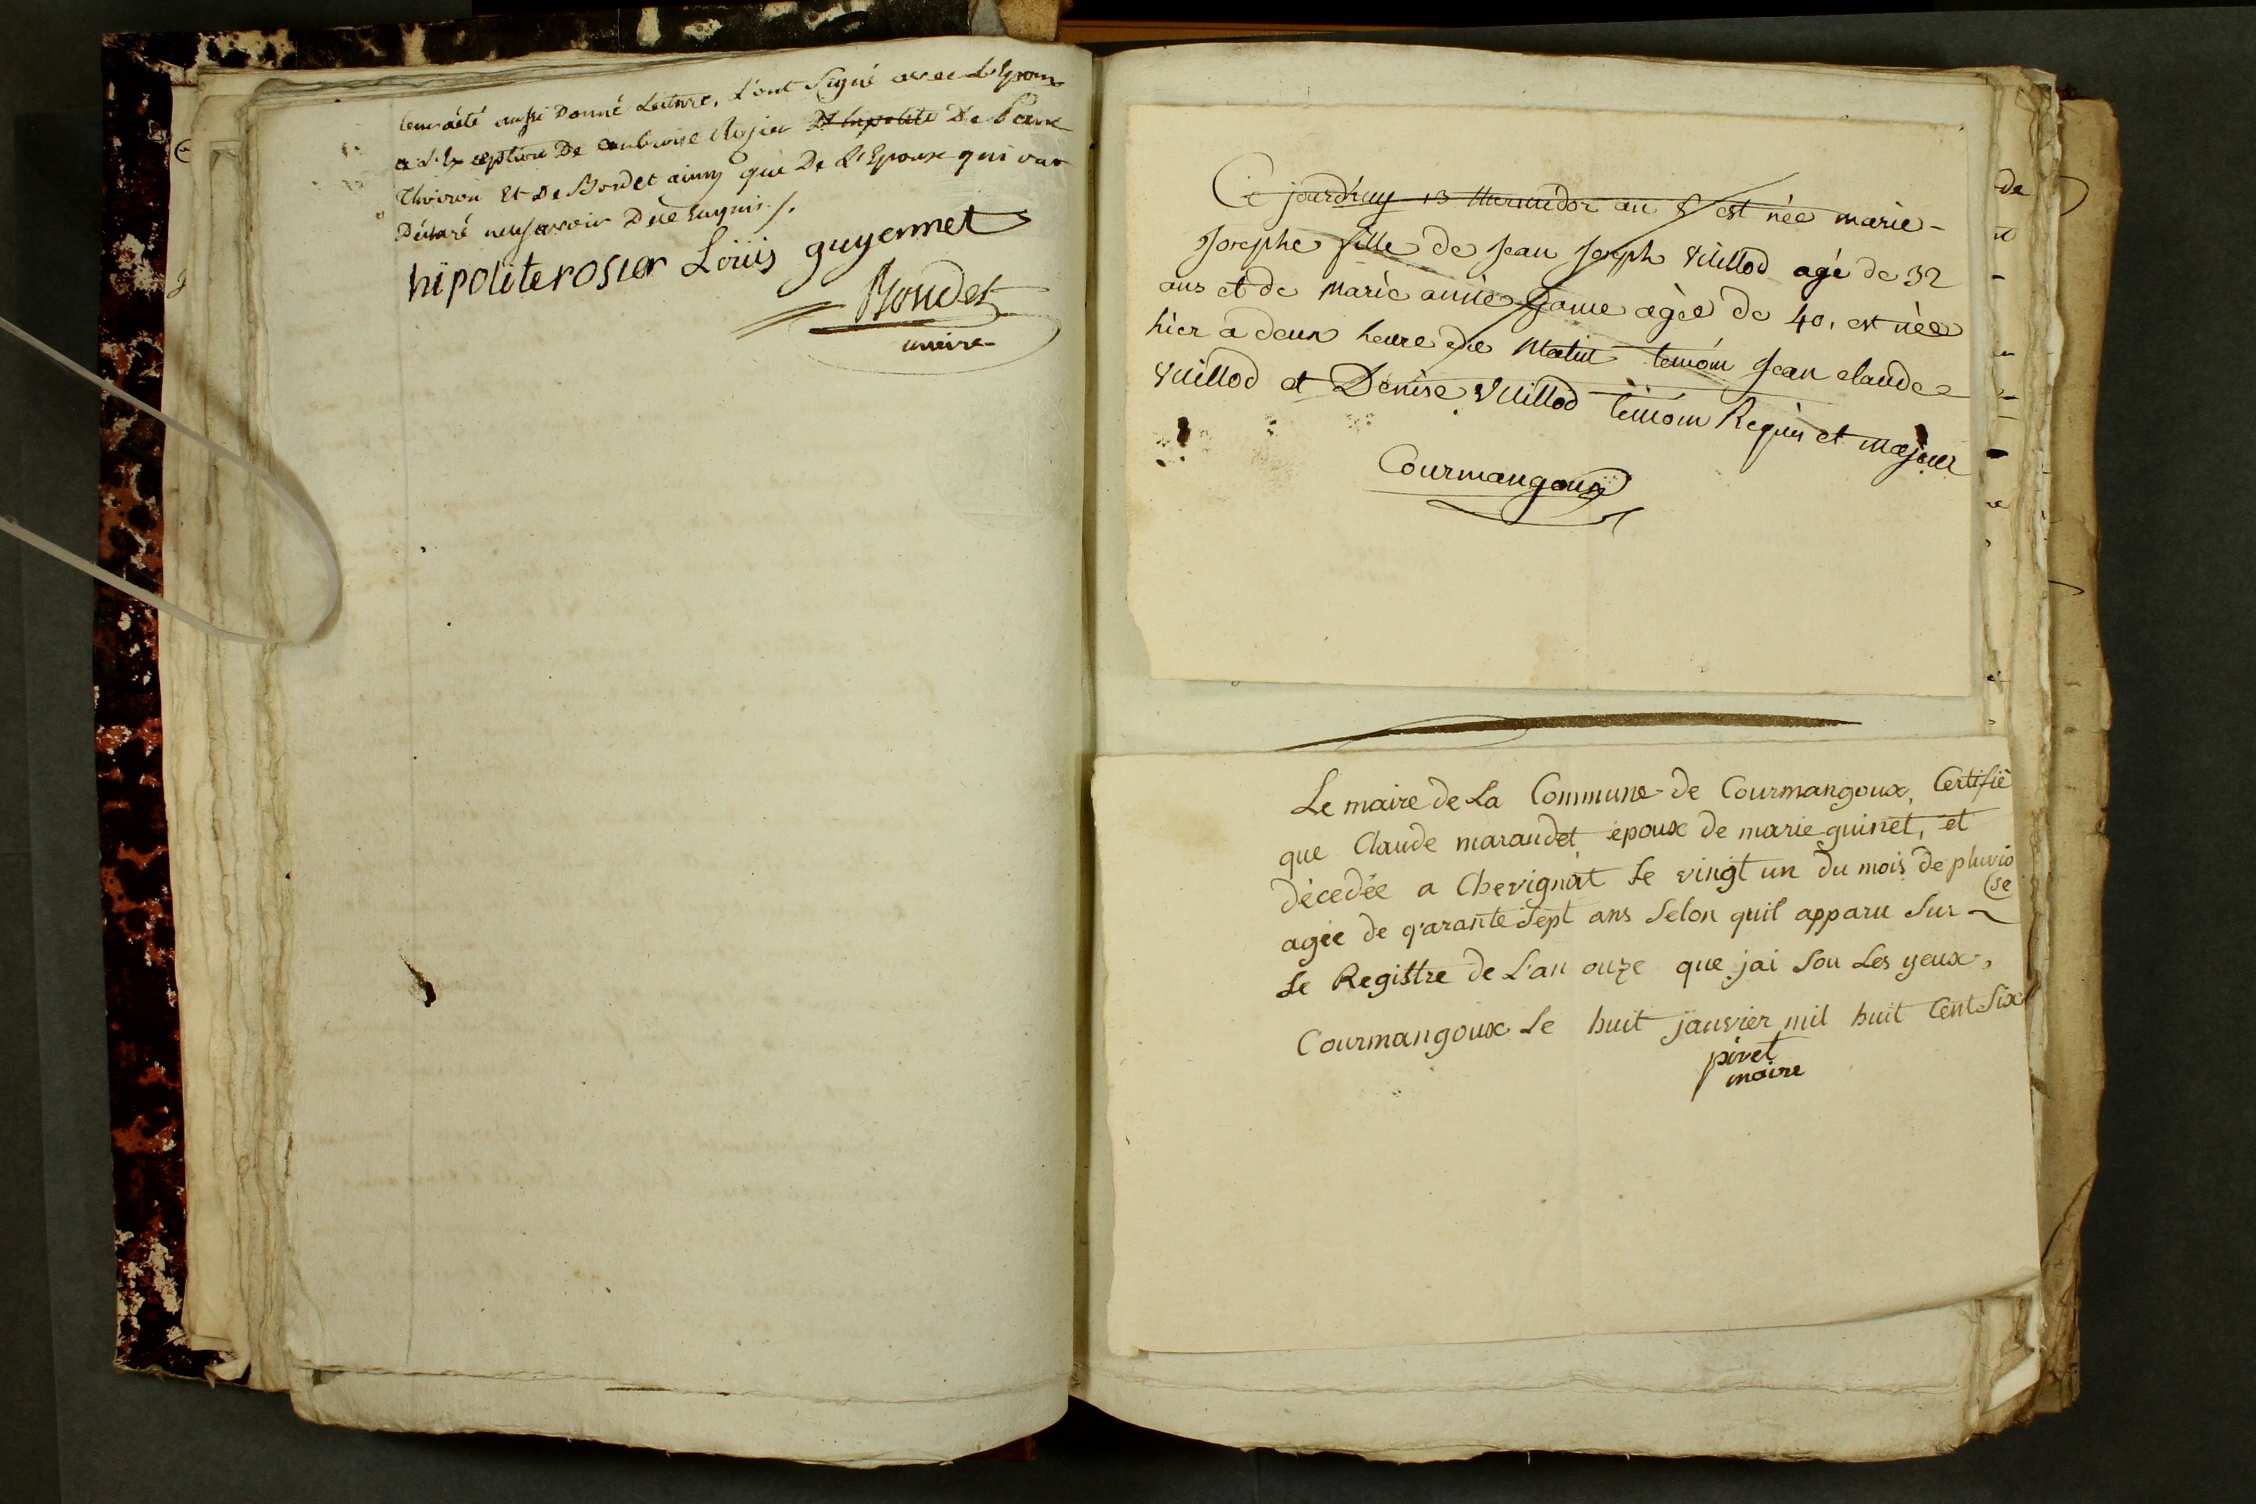 leur aété aussi Donné Lecture, L'ont Signé avec L'Epoux
a L'Exception De ambroise Rosier D'hipolite De Pierre
Thoiron Et De Bondet ainsy que De L'Epouse qui ont
Déclaré ne Savoir De ce Enquis /.
hipolite rosier Loüis guyennet
Bondet
maire
Ce jourdhuy 13 thermidor an 8 est née marie-
Josephe fille de Jean Joseph Vuillod agé de 32
ans et de Marie anne Jame agèe de 40, est nèe
hier a deux heure du Matin temoin Jean claude
Vuillod et Denise Vuillod temoin Requis et majeur
Courmangoux
Le maire de La Commune de Courmangoux, Certifie
que Claude maraudet époux de marie guinet, et
décedée a Chevignat Le vingt un du mois de pluvio
se
agée de qarante Sept ans Selon quil apparu Sur
Le Registre de L'an onze que jai Sou Les yeux,
Courmangoux Le huit janvier mil huit Cent Six
pivet
maire
de